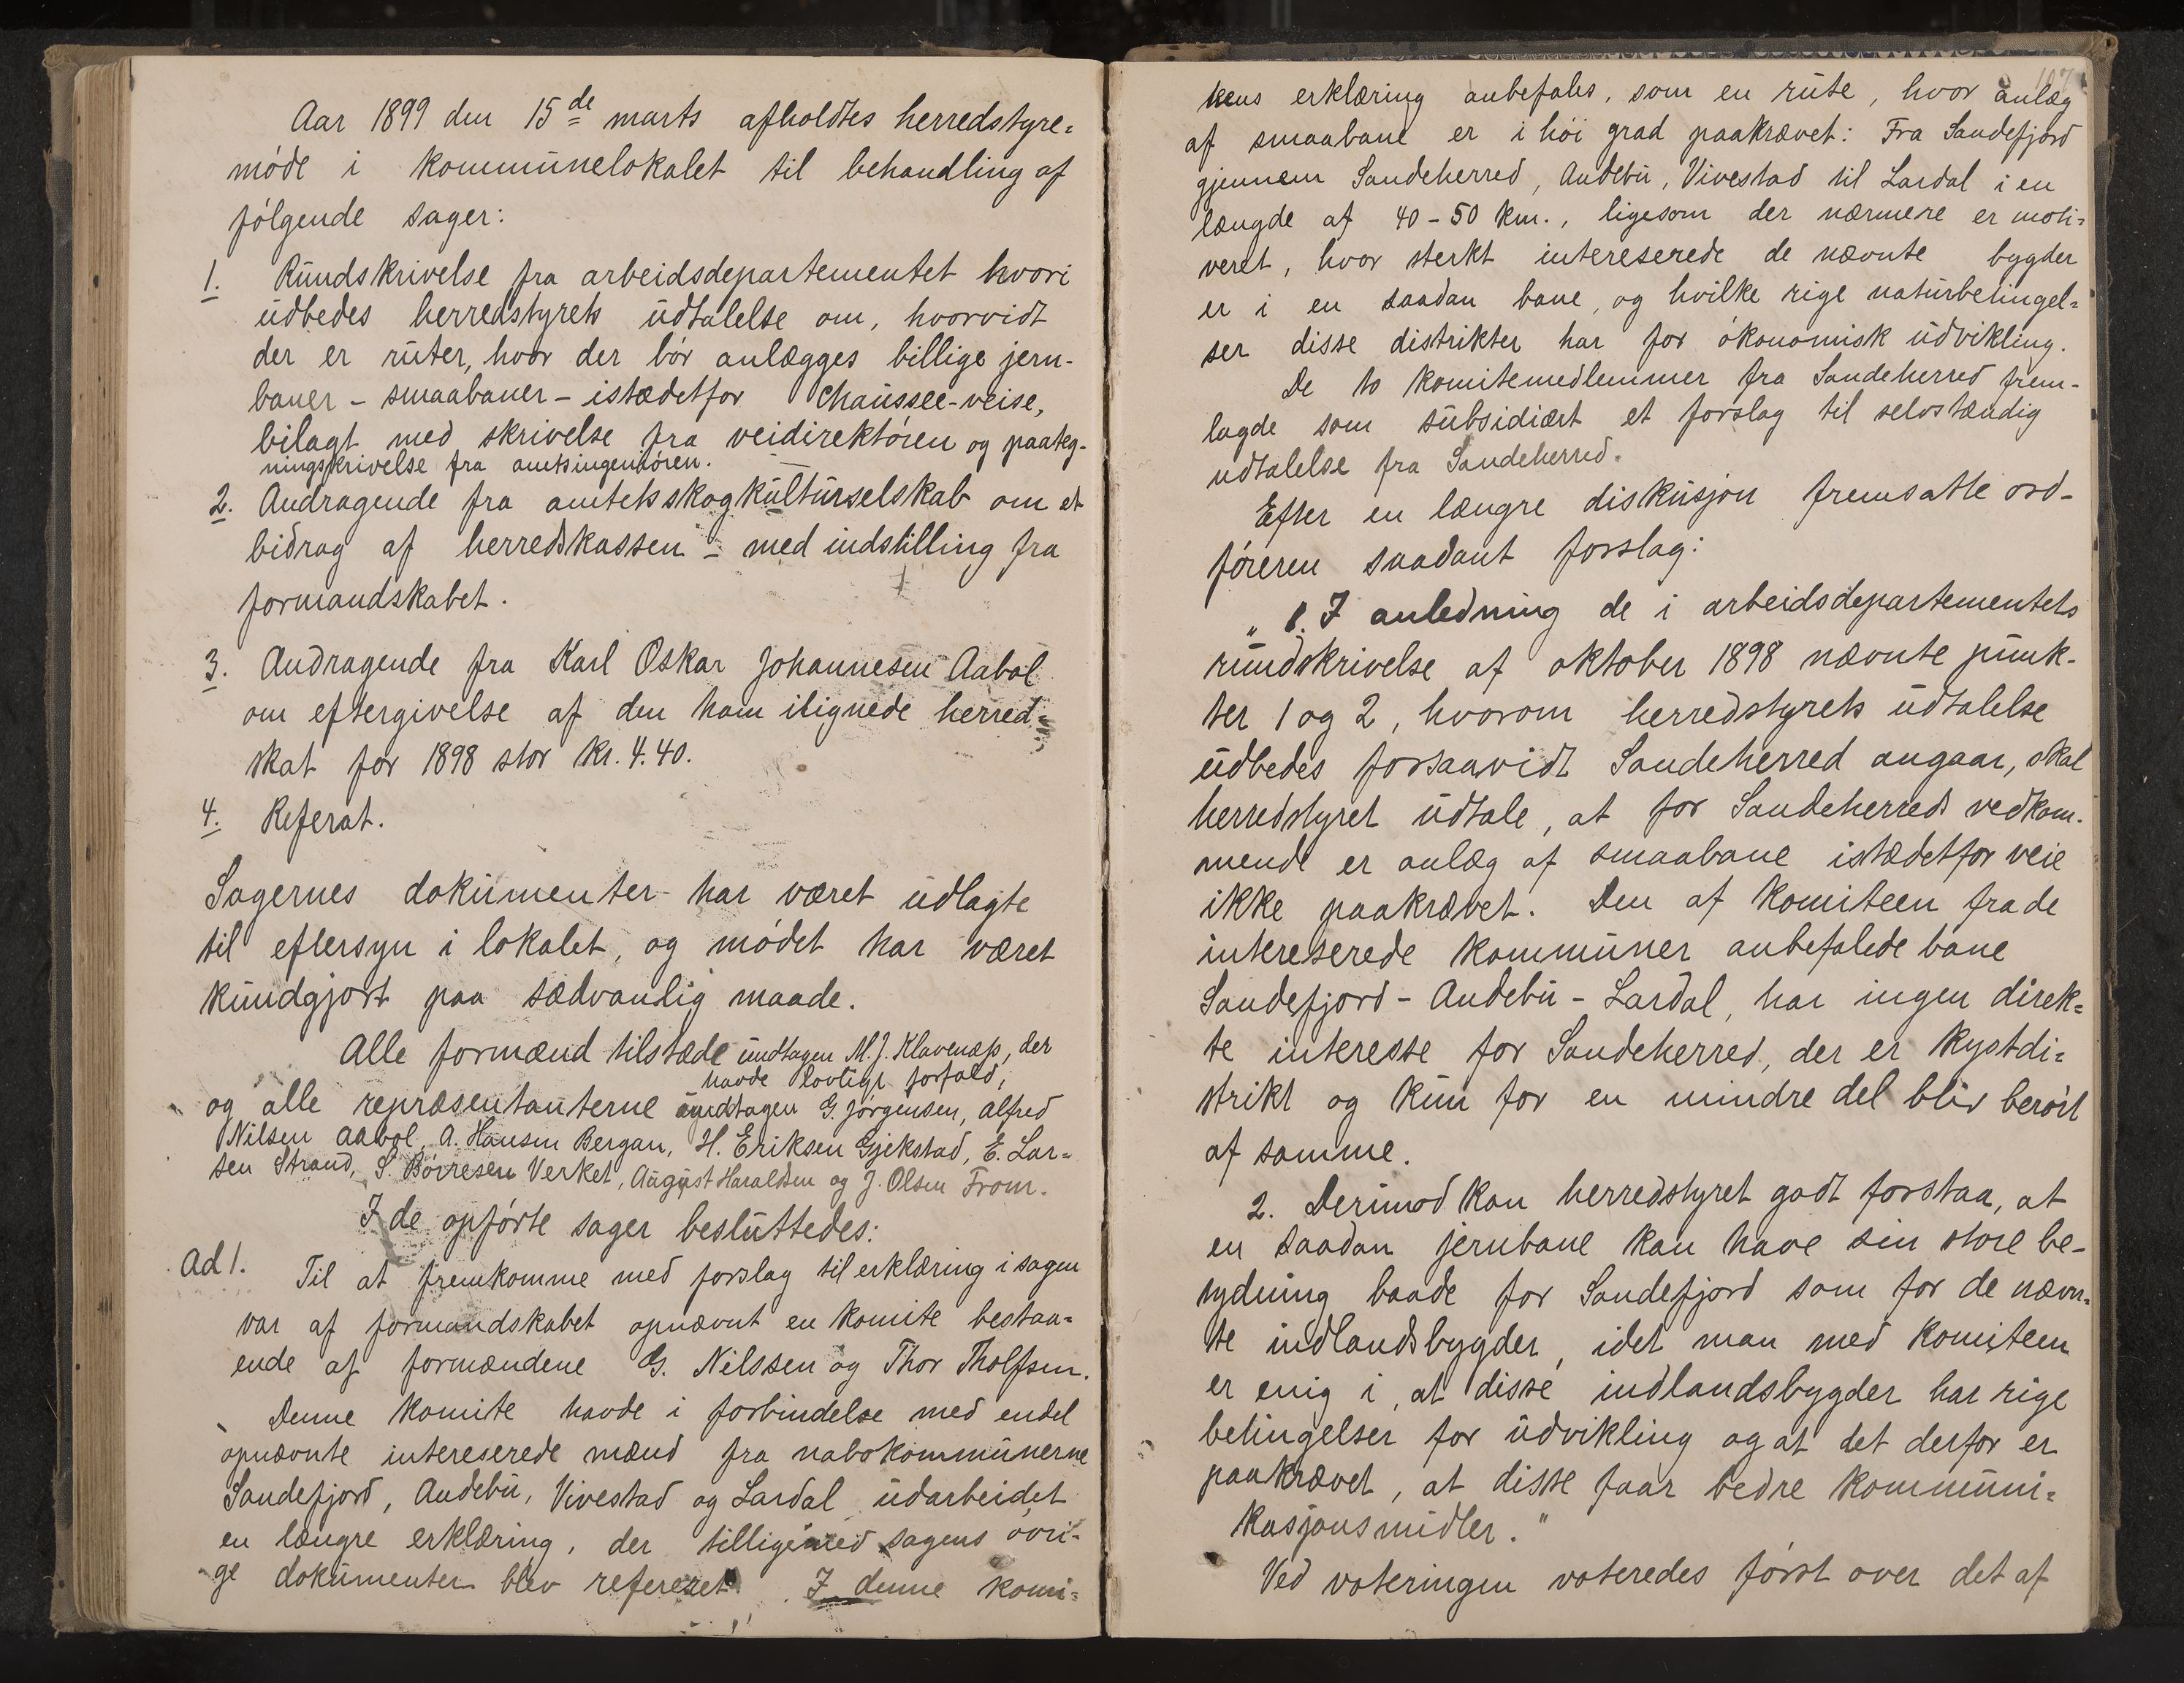 Aar 1899 den 15de marts afholdtes herredstyre=
møde i kommunelokalet til behandling af
følgende sager:
1. Rundskrivelse fra arbeidsdepartementet hvori
udbedes herredstyrets udtalelse om, hvorvidt
der er ruter, hvor der bør anlægges billige jern-
baner - smaabaner - istædetfor chaussee-veise,
bilagt med skrivelse fra veidirektøren og paateg-
ningsskrivelse fra amtsingeniøren.
2. Andragende fra amtets skogkulturselskab om et
bidrag af herredskassen - med indstilling fra
formandskabet.
3. Andragende fra Karl Oskar Johannesen Aabol
om eftergivelse af den ham ilignede herred=
skat for 1898 stor kr. 4.40.
4. Referat.
Sagernes dokumenter har været udlagte
til eftersyn i lokalet, og mødet har været
kundgjort paa sædvanlig maade.
Alle formænd tilstæde undtagen M. J. Klavenæss, der
havde lovligt forfald,
og alle repræsentanterne undtagen G. Jørgensen, Alfred
Nilsen Aabol, A. Hansen Bergan, H. Eriksen Gjekstad, E. Lar=
sen Strand, S. Børresen Verket, August Haraldsen og J. Olsen From.
I de opførte sager besluttedes:
Ad 1. Til at fremkomme med forslag til erklæring i sagen
var af formandskabet opnævnt en komite bestaa=
ende af formændene G. Nilssen og Thor Tholfsen.
Denne komite havde i forbindelse med endel
opnævnte intereserede mænd fra nabokommunerne
Sandefjord, Andebu, Vivestad og Lardal udarbeidet
en længre erklæring, der tilligemed sagens øvri-
ge dokumenter blev refereret. I denne komi=
teens erklæring anbefales, som en rute, hvor anlæg
af smaabane er i høi grad paakrævet: Fra Sandefjord
gjennem Sandeherred, Andebu, Vivestad til Lardal i en
længde af 40-50 km., ligesom der nærmere er moti=
veret, hvor sterkt intereserede de nævnte bygder
er i en saadan bane, og hvilke rige naturbetingel=
ser disse distrikter har for økonomisk udvikling.
De to komitemedlemmer fra Sandeherred frem-
lagde som subsidiært et forslag til selvstændig
udtalelse fra Sandeherred.
Efter en længre diskusjon fremsatte ord-
føreren saadant forslag:
„1. I anledning de i arbeidsdepartementets
rundskrivelse af oktober 1898 nævnte punk-
ter 1 og 2, hvorom herredstyrets udtalelse
udbedes forsaavidt Sandeherred angaar, skal
herredstyret udtale, at for Sandeherreds vedkom-
mende er anlæg af smaabane istædetfor veie
ikke paakrævet. Den af komiteen fra de
intereserede kommuner anbefalede bane
Sandefjord - Andebu - Lardal, har ingen direk=
te interesse for Sandeherred, der er kystdi=
strikt og kun for en mindre del blir berørt
af samme.
2. Derimod kan herredstyret godt forstaa, at
en saadan jernbane kan have sin store be-
tydning baade for Sandefjord som for de nævn=
te indlandsbygder, idet man med komiteen
er enig i, at disse indlandsbygder har rige
betingelser for udvikling og at det derfor er
paakrævet, at disse faar bedre kommuni=
kasjonsmidler."
Ved voteringen voteredes først over det af